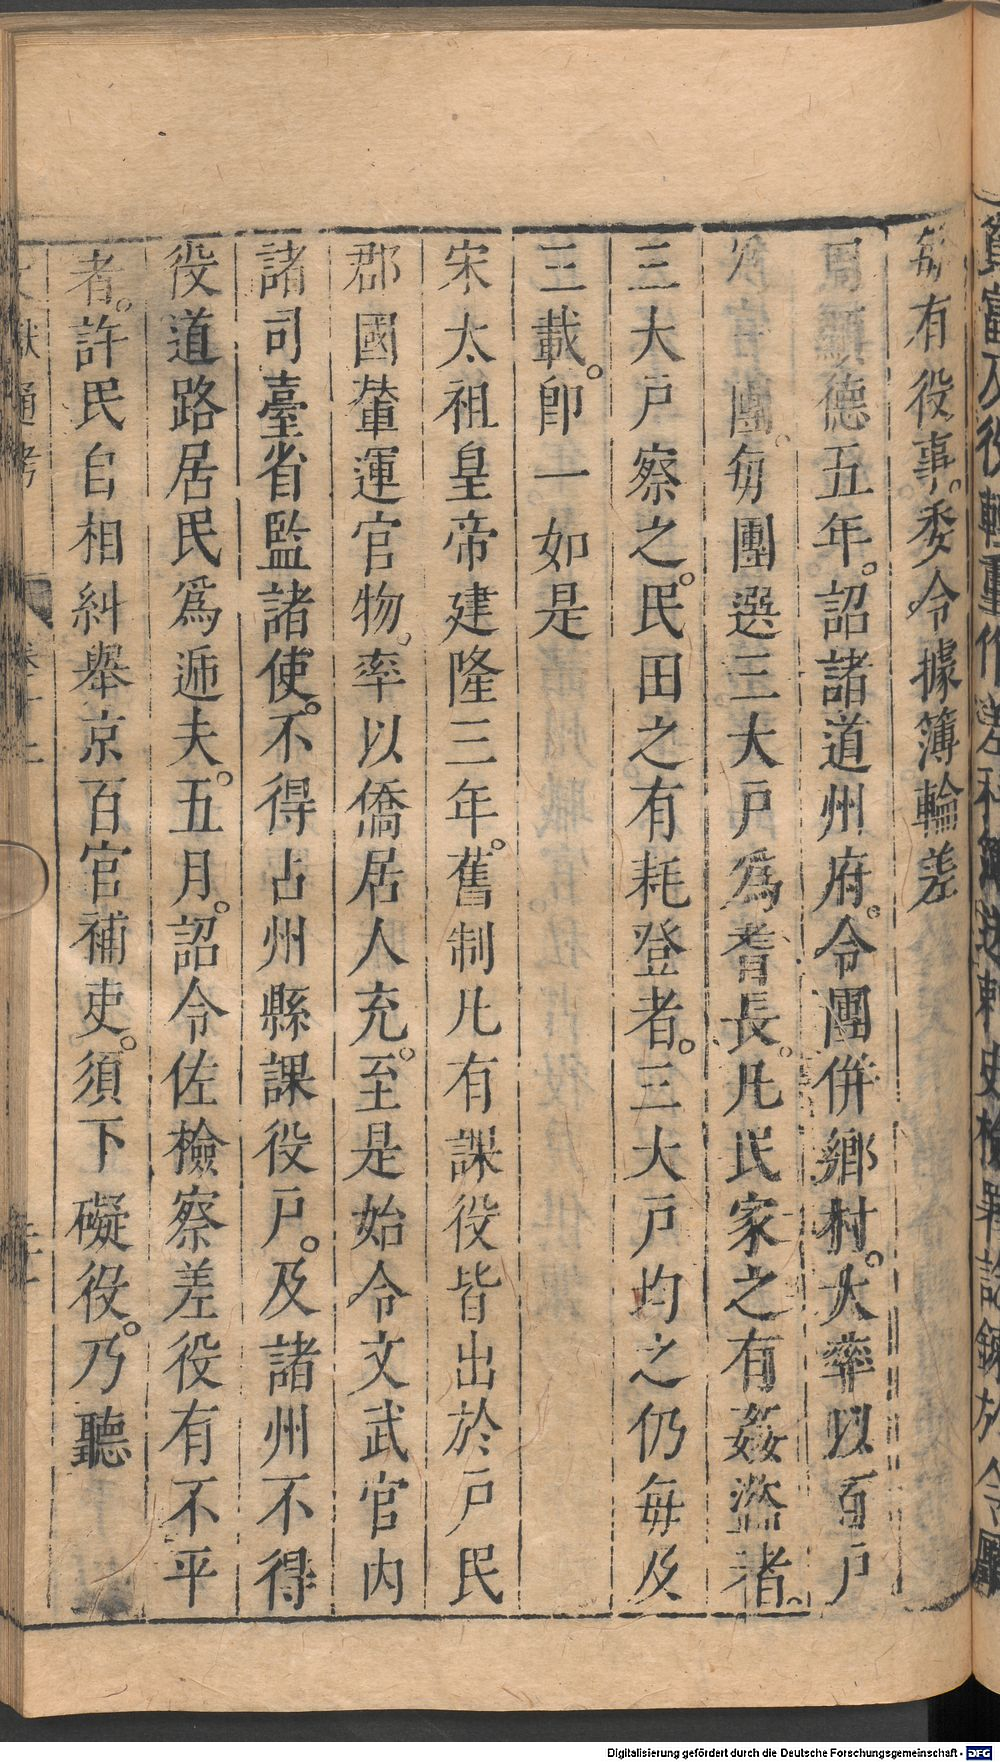 每有役事。委令據簿輪差
周顯德五年。詔諸道州府。令團併鄉村。大率以百戶
爲團。每團選三大戶爲耆長。凡民家之有姦盜者。
三大戶察之。民田之有耗登者。三大戶均之仍每及
三載。即一如是
宋太祖皇帝建隆三年。舊制凡有課役皆出於戶民
郡國輦運官物。率以僑居人充。至是始令文武官內
諸司臺省監諸使。不得占州縣課役戶。及諸州不得
役道路居民爲遞夫。五月。詔令佐檢察差役有不平
者。許民自相糾舉京百官補吏。須下礙役。乃聽
文獻通考
卷十二
Digitalisierung gefördert durch die Deutsche Forschungsgemeinschaft - DFG